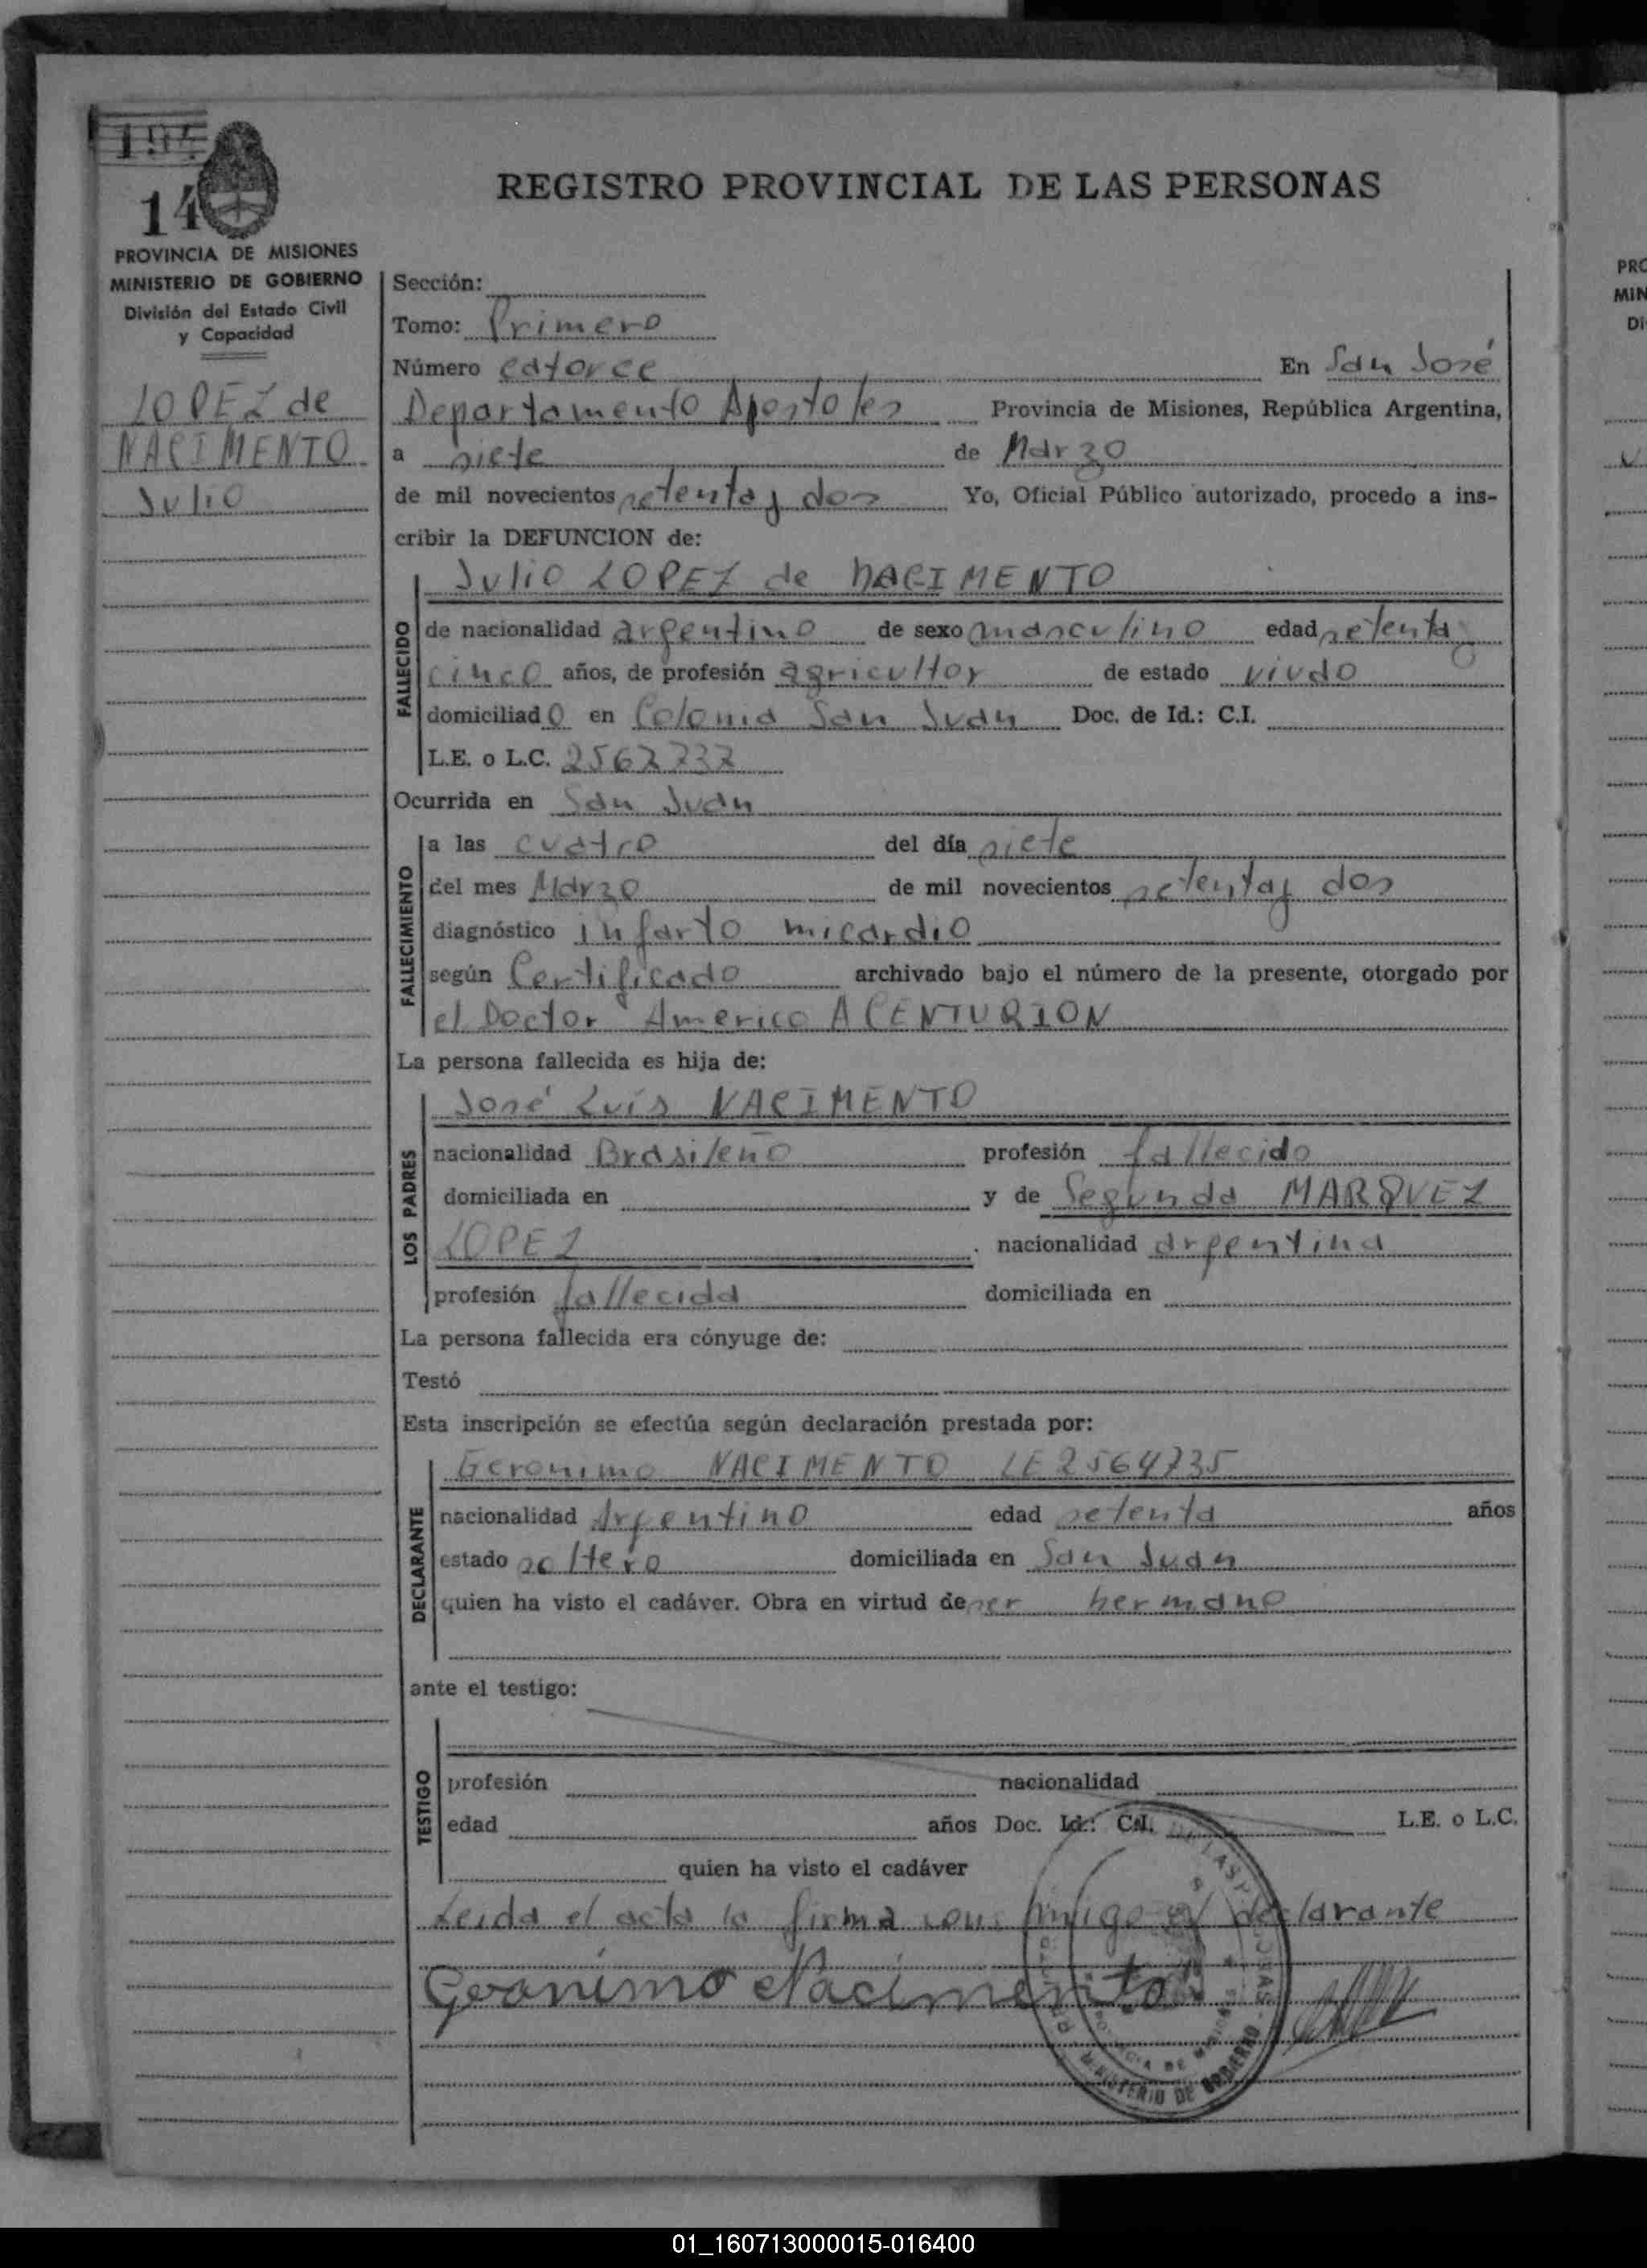 194
14
REGISTRO PROVINCIAL DE LAS PERSONAS
PROVINCIA DE MISIONES
MINISTERIO DE GOBIERNO
División del Estado Civil
y Capacidad
LOPEZ de
NACIMENTO
Julio
Sección:
Tomo: Primero
Número catorce En San José
Departamento Apostoles Provincia de Misiones, República Argentina,
a siete de Marzo
de mil novecientos setenta y dos Yo, Oficial Público autorizado, procedo a ins-
cribir la DEFUNCION de:
Julio LOPEZ de NACIMENTO
FALLECIDO
de nacionalidad argentino de sexo masculino edad setenta y
cinco años, de profesión agricultor de estado viudo
domiciliado en Colonia San Juan Doc. de Id.: C.I.
L.E. o L.C. 2567737
Ocurrida en San Juan
FALLECIMIENTO
a las cuatro del día siete
del mes Marzo de mil novecientos setenta y dos
diagnóstico infarto micardio
según Certificado archivado bajo el número de la presente, otorgado por
el Doctor Americo A CENTURION
La persona fallecida es hija de:
LOS PADRES
José Luis NACIMENTO
nacionalidad Brasileño profesión fallecido
domiciliada en y de Segunda MARQUEZ
LOPEZ . nacionalidad argentina
profesión fallecida domiciliada en
La persona fallecida era cónyuge de:
Testó
Esta inscripción se efectúa según declaración prestada por:
DECLARANTE
Geronimo NACIMENTO LE 2564735
nacionalidad Argentino edad setenta años
estado soltero domiciliada en San Juan
quien ha visto el cadáver. Obra en virtud de ser hermano
ante el testigo:
TESTIGO
profesión nacionalidad
edad años Doc. Id.: C.I. L.E. o L.C.
quien ha visto el cadáver
Leida el acta la firma conmigo el declarante
Geronimo Nacimento
MINISTERIO DE GOBIERNO
01_160713000015-016400